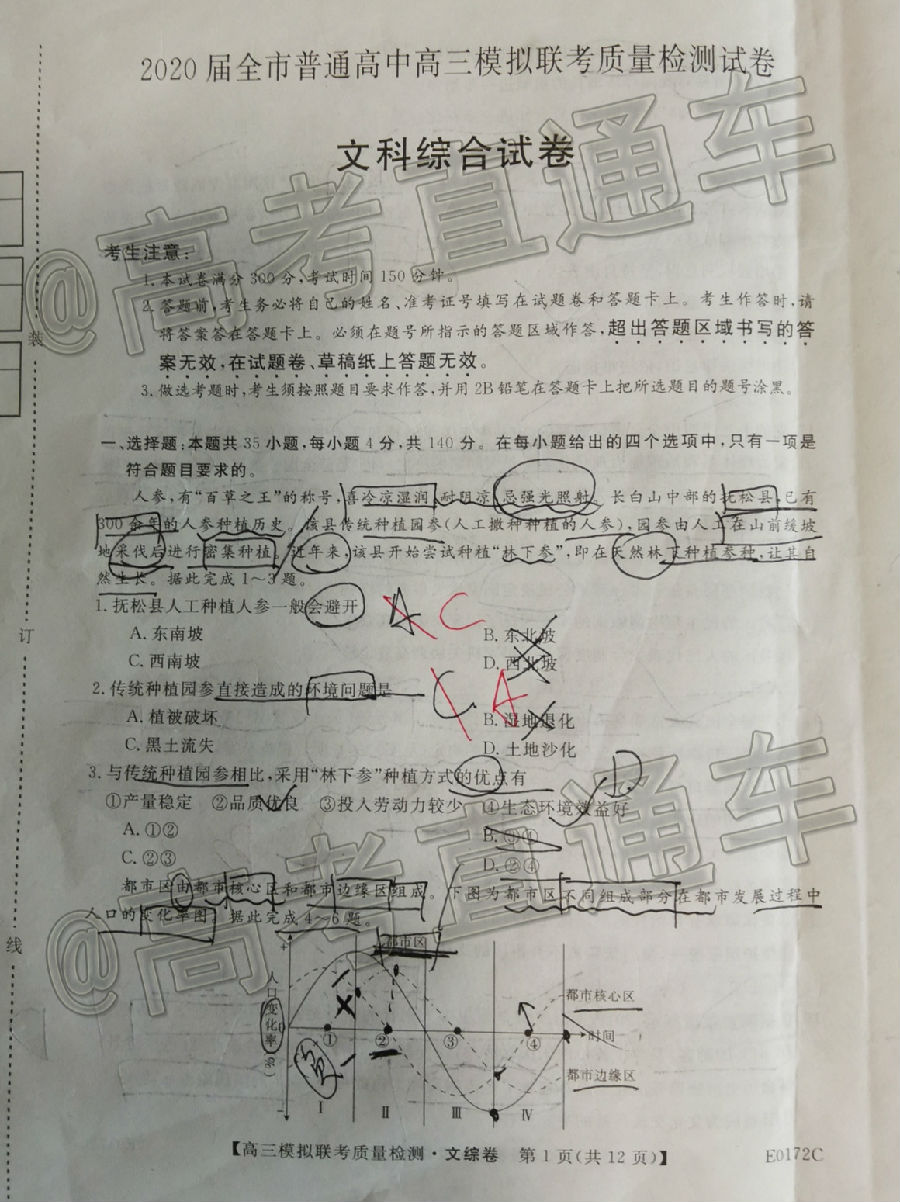 2020届全市普通高中高三模拟联考质量检测试卷
文科综合试卷
考生注意:
1.本试卷满分300分,考试时间150分钟。
2.答题前,考生务必将自己的姓名、准考证号填写在试题卷和答题卡上。考生作答时,请
将答案答在答题卡上。必须在题号所指示的答题区域作答,超出答题区域书写的答
案无效,在试题卷、草稿纸上答题无效。
3.做选考题时,考生须按照题目要求作答,并用2B铅笔在答题卡上把所选题目的题号涂黑。
一、选择题:本题共35小题,每小题4分,共140分。在每小题给出的四个选项中,只有一项是
符合题目要求的。
人参,有“百草之王”的称号,喜冷凉湿润、耐阴凉,忌强光照射。长白山中部的抚松县,已有
300余年的人参种植历史。该县传统种植园参(人工撒种种植的人参),园参由人工在山前缓坡
地采伐后进行密集种植。近年来,该县开始尝试种植“林下参”,即在天然林下种植参种,让其自
然生长。据此完成1～3题。
1.抚松县人工种植人参一般会避开 A C
A.东南坡 B.东北坡
C.西南坡 D.西北坡
2.传统种植园参直接造成的环境问题是 C A
A.植被破坏 B.湿地退化
C.黑土流失 D.土地沙化
3.与传统种植园参相比,采用“林下参”种植方式的优点有 D
①产量稳定 ②品质优良 ③投入劳动力较少 ④生态环境效益好
A.①② B.③④
C.②③ D.②④
都市区由都市核心区和都市边缘区组成。下图为都市区不同组成部分在都市发展过程中
人口的变化率图。据此完成4～6题。
+
都市区
人口变化率(%)
0
都市核心区
① ② ③ ④ 时间
都市边缘区
-
Ⅰ Ⅱ Ⅲ Ⅳ
【高三模拟联考质量检测·文综卷 第1页(共12页)】 E0172C
装
订
线
@高考直通车
@高考直通车